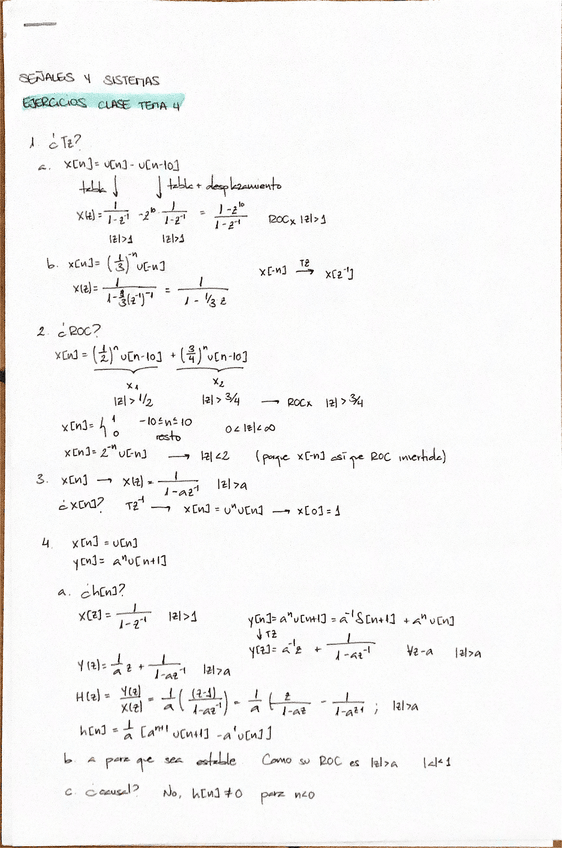 SEÑALES Y SISTEMAS
EJERCICIOS CLASE TEMA 4
1. ¿Tz?
a. x[n] = u[n] - u[n-10]
tabla ↓ ↓ tabla + desplazamiento
X(z) = 1/(1-z⁻¹) - z¹⁰ · 1/(1-z⁻¹) = (1-z¹⁰)/(1-z⁻¹) ROCx |z|>1
|z|>1 |z|>1
b. x[n] = (1/3)⁻ⁿ u[-n] x[-n] →TZ x[z⁻¹]
X(z) = = 1/(1 - 1/3 z)
2. ¿ROC?
x[n] = (1/2)ⁿ u[n-10] + (3/4)ⁿ u[n-10]
x₁ x₂
|z| > 1/2 |z| > 3/4 → ROCx |z| > 3/4
x[n] = { 1 -10≤n≤10 0<|z|<∞
0 resto
x[n] = 2⁻ⁿ u[-n] → |z|<2 (porque x[-n] así que ROC invertida)
3. x[n] → X(z) = 1/(1-az⁻¹) |z|>a
¿x[n]? TZ⁻¹ → x[n] = uⁿ u[n] → x[0] = 1
4. x[n] = u[n]
y[n] = aⁿ u[n+1]
a. ¿h[n]?
X[z] = 1/(1-z⁻¹) |z|>1 y[n] = aⁿ u[n+1] = a⁻¹ δ[n+1] + aⁿ u[n]
↓TZ
y[z] = a⁻¹z + 1/(1-az⁻¹) ∀z-a |z|>a
Y(z) = 1/a z + 1/(1-az⁻¹) |z|>a
H(z) = Y(z)/X(z) = 1/a ( (z-1)/(1-az⁻¹) ) = 1/a ( z/(1-az) - ; |z|>a
h[n] = 1/a [aⁿ⁺¹ u[n+1] - aⁿ u[n]]
b. a para que sea estable. Como su ROC es |z|>a |a|<1
c. ¿causal? No, h[n] ≠ 0 para n<0